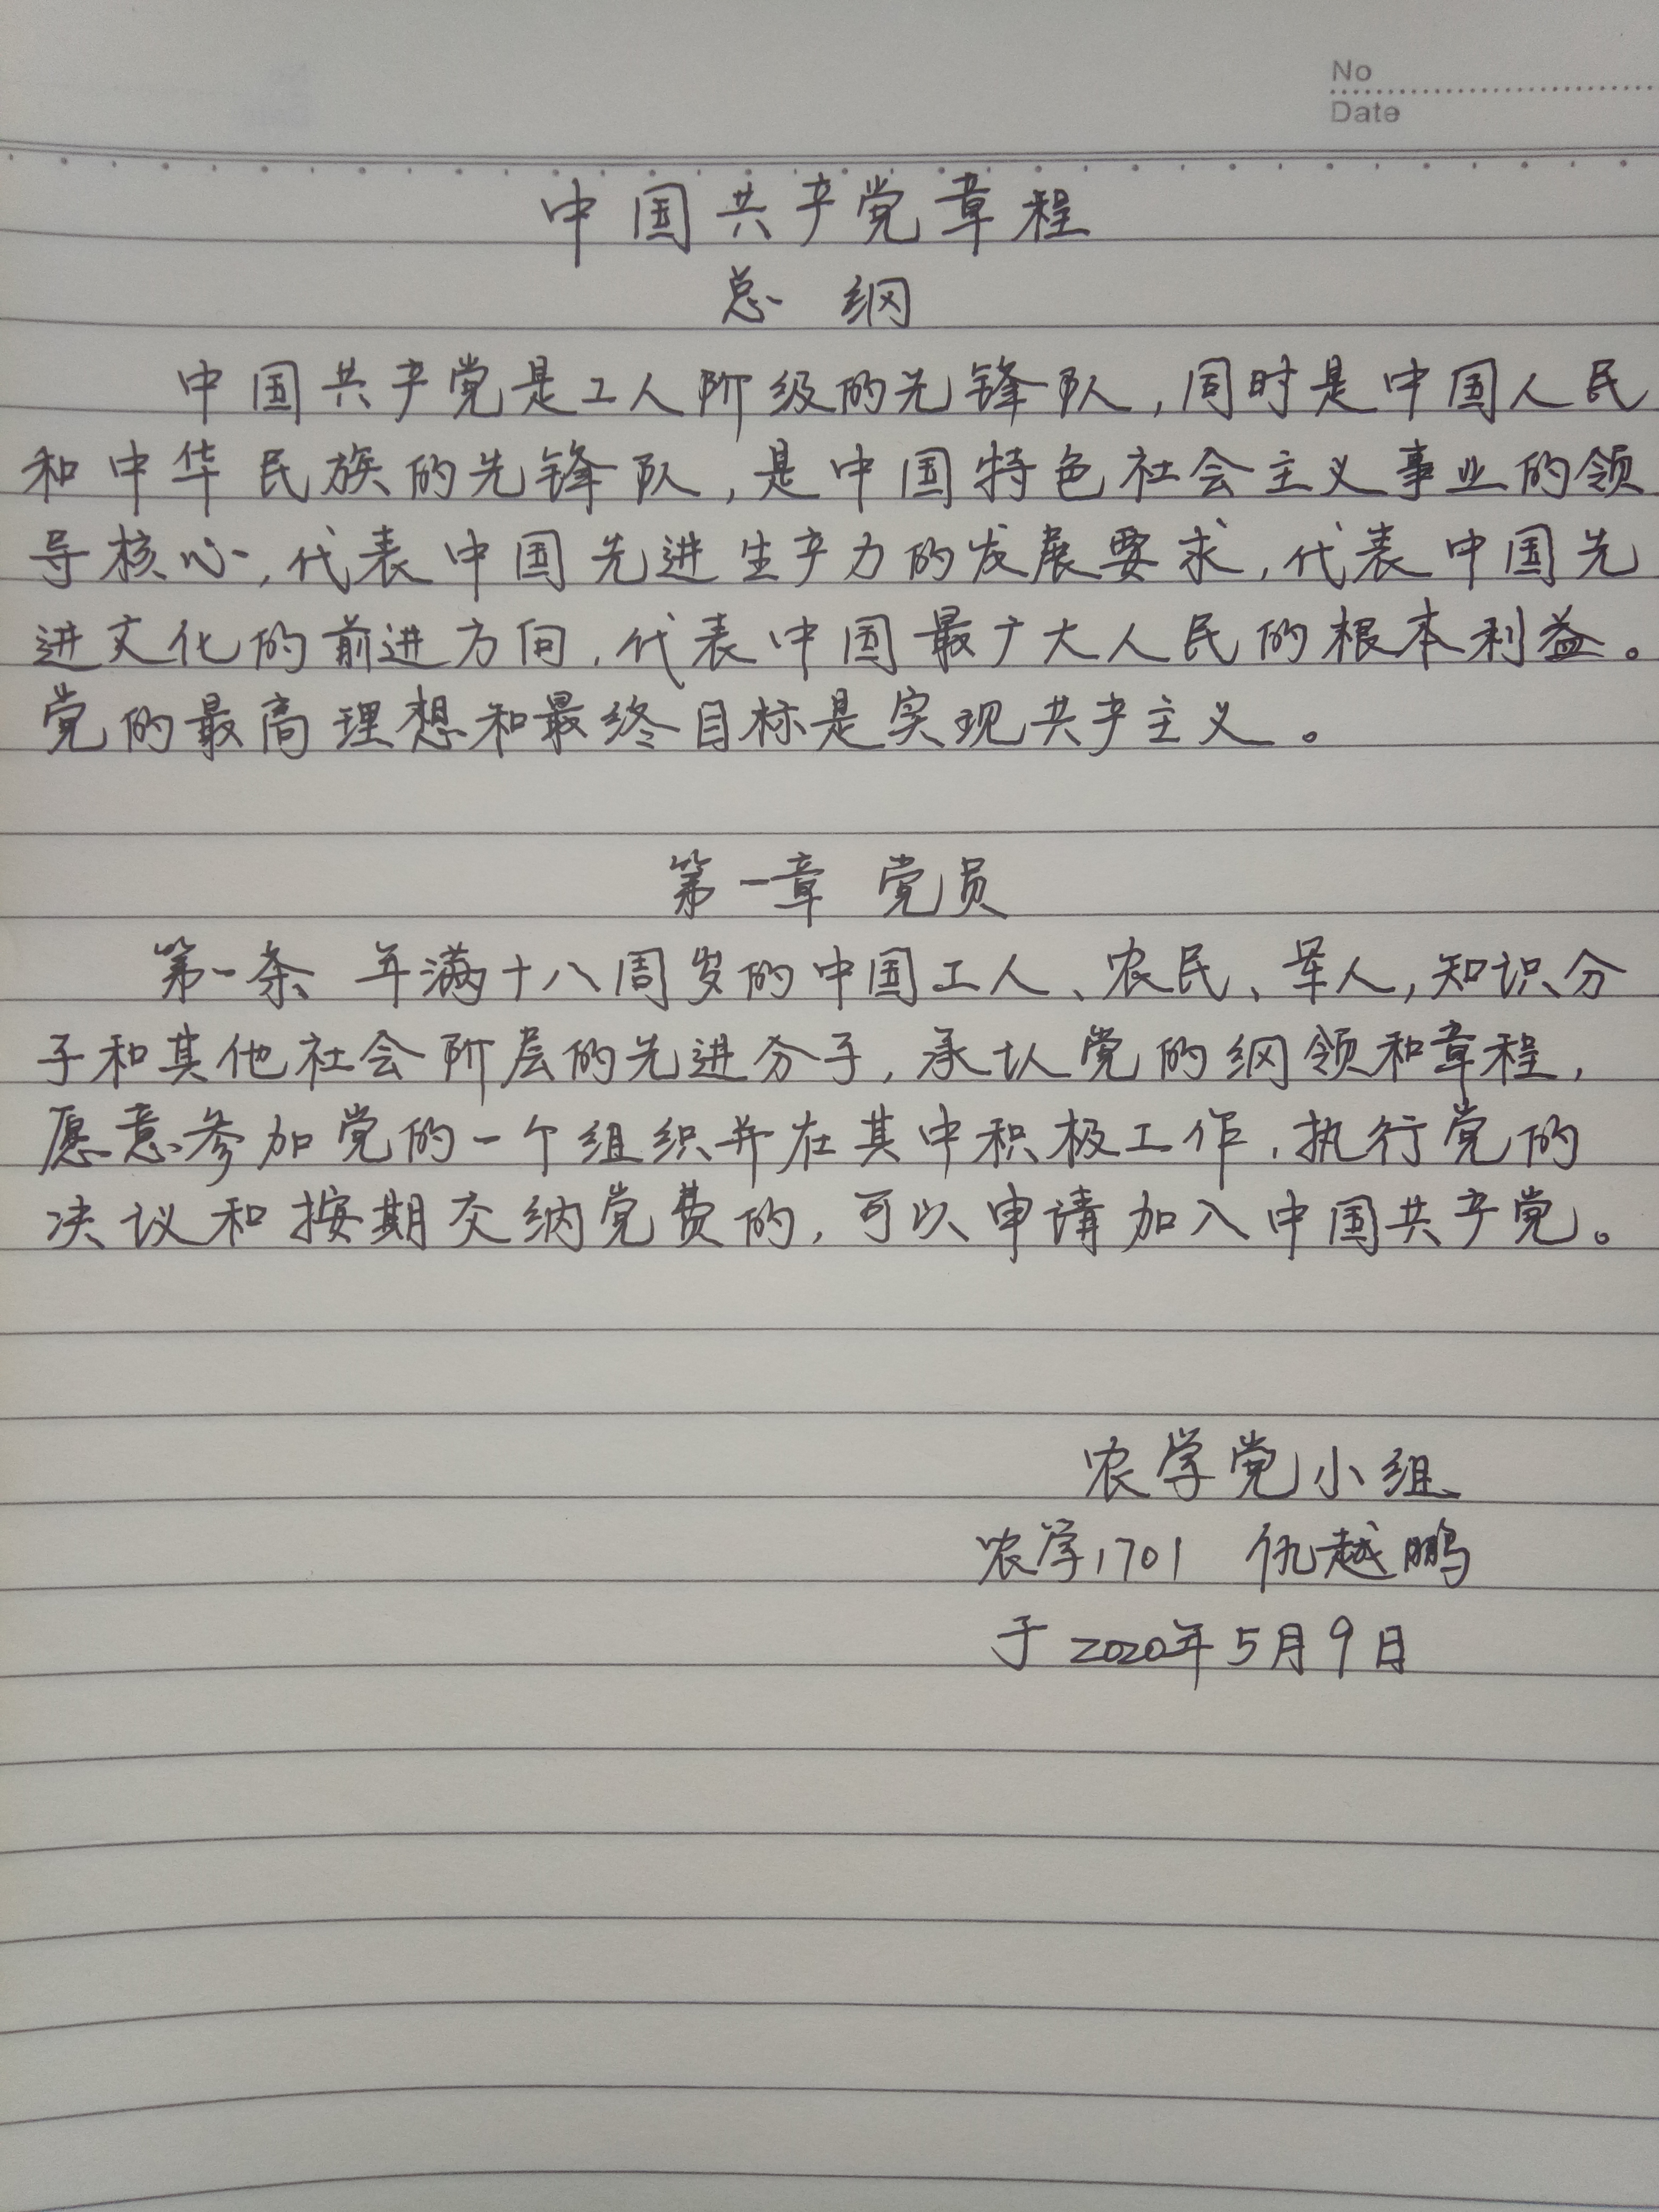 No
Date
中国共产党章程
总 纲
中国共产党是工人阶级的先锋队,同时是中国人民
和中华民族的先锋队,是中国特色社会主义事业的领
导核心,代表中国先进生产力的发展要求,代表中国先
进文化的前进方向,代表中国最广大人民的根本利益。
党的最高理想和最终目标是实现共产主义。
第一章 党员
第一条 年满十八周岁的中国工人、农民、军人,知识分
子和其他社会阶层的先进分子,承认党的纲领和章程,
愿意参加党的一个组织并在其中积极工作,执行党的
决议和按期交纳党费的,可以申请加入中国共产党。
农学党小组
农学1701 仇越鹏
于2020年5月9日